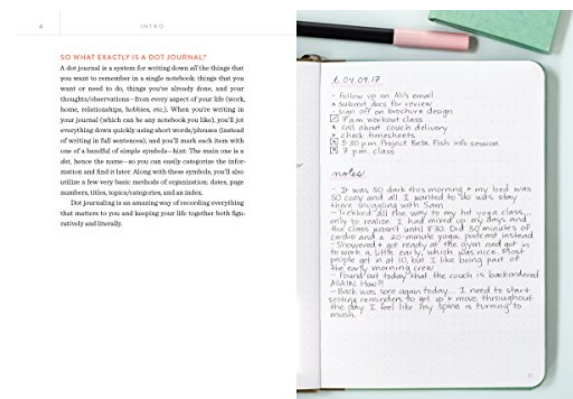 4
INTRO
SO WHAT EXACTLY IS A DOT JOURNAL?
A dot journal is a system for writing down all the things that
you want to remember in a single notebook things that you
want or need to do, things you've already done, and your
thoughts/observations—from every aspect of your life (work,
home, relationships, hobbies, etc.). When you're writing in
your journal (which can be any notebook you like), you'll jot
everything down quickly using short words/phrases (instead
of writing in full sentences), and you'll mark each item with
one of a handful of simple symbols—hint: The main one is a
dot, hence the name—so you can easily categorize the infor-
mation and find it later. Along with these symbols, you'll also
utilize a few very basic methods of organization: dates, page
numbers, titles, topics/categories, and an index.
Dot journaling is an amazing way of recording everything
that matters to you and keeping your life together both figu-
ratively and literally.
t.04.09.17
- follow up on Ali's email
× submit docs for review
- sign off on brochure design
7 a.m. workout class
× call about couch delivery
> check timesheets
5:30 p.m. Project Beta Fish info session
7 p.m. class
notes
- It was SO dark this morning + my bed was
SO cozy and all I wanted to do was stay
there snuggling with Sam
- Trekked all the way to my hot yoga class...
only to realize I had mixed up my days and
the class wasn't until 8:30. Did 30 minutes of
cardio and a 20-minute yoga podcast instead
- Showered + got ready at the gym and got in
to work a little early, which was nice. Most
people get in at 10, but I like being part of
the early morning crew
- Found out today that the couch is backordered
AGAIN. How?!
- Back was sore again today... I need to start
setting reminders to get up + move throughout
the day. I feel like my spine is turning to
mush.